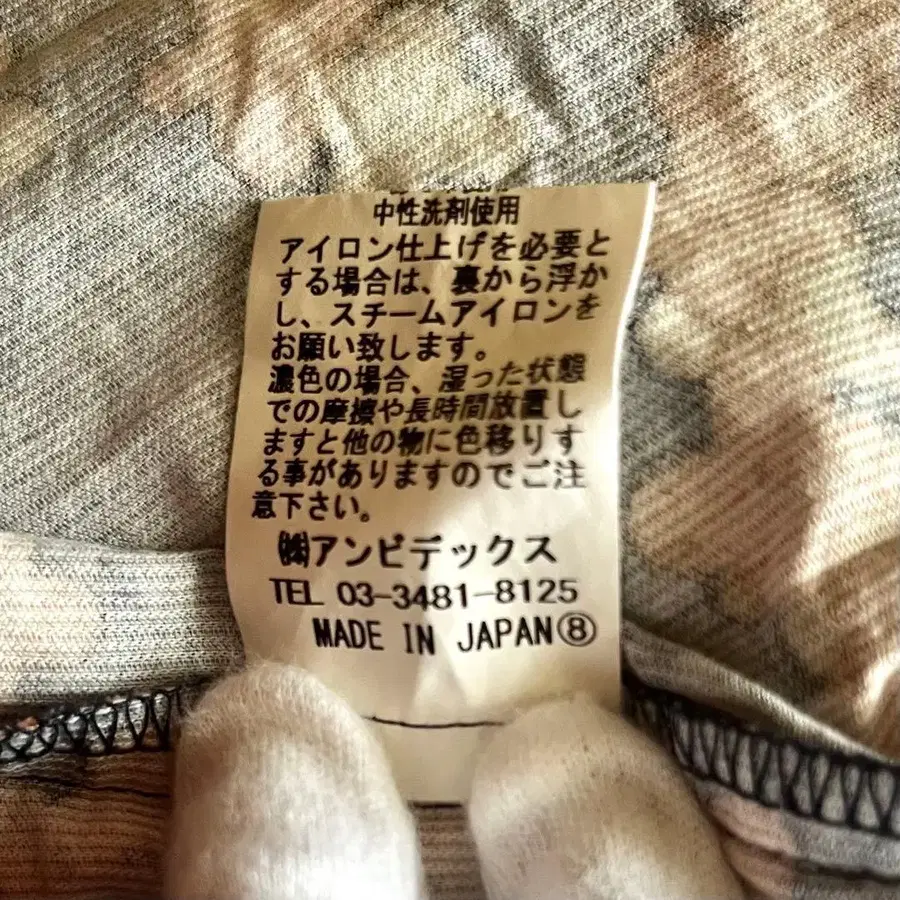 中性洗剤使用
アイロン仕上げを必要と
する場合は、裏から浮か
し、スチームアイロンを
お願い致します。
濃色の場合、湿った状態
での摩擦や長時間放置し
ますと他の物に色移りす
る事がありますのでご注
意下さい。
㈱アンビデックス
TEL 03-3481-8125
MADE IN JAPAN⑧